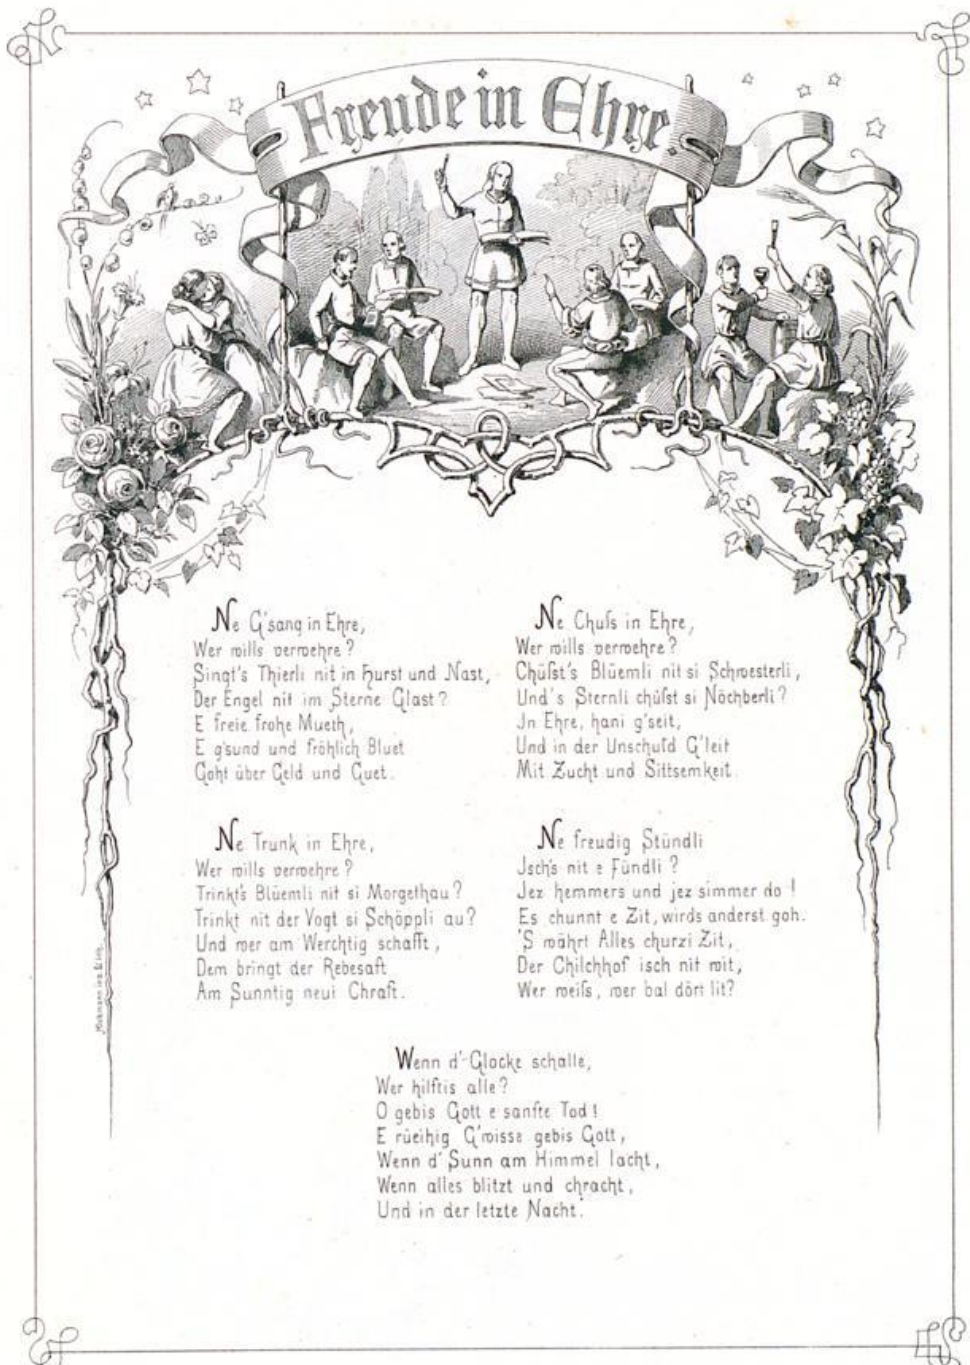 Freude in Ehre.
Ne G'sang in Ehre,
Wer wills verwehre?
Singt's Thierli nit in Hurst und Nast,
Der Engel nit im Sterne Glast?
E freie frohe Mueth,
E g'sund und fröhlich Bluet
Goht über Geld und Guet.
Ne Trunk in Ehre,
Wer wills verwehre?
Trinkt's Blüemli nit si Morgethau?
Trinkt nit der Vogt si Schöppli au?
Und wer am Werchtig schafft,
Dem bringt der Rebesaft
Am Sunntig neui Chraft.
Ne Chuſs in Ehre,
Wer wills verwehre?
Chüſst's Blüemli nit si Schwesterli,
Und's Sternli chüſst si Nöchberli?
In Ehre, hani g'seit,
Und in der Unschuld G'leit
Mit Zucht und Sittsemkeit.
Ne freudig Stündli
Isch's nit e Fündli?
Jez hemmers und jez simmer do!
Es chunnt e Zit, wirds anderst goh.
'S währt Alles churzi Zit,
Der Chilchhof isch nit wit,
Wer weiſs, wer bal dört lit?
Wenn d'-Glocke schalle,
Wer hilftis alle?
O gebis Gott e sanfte Tod!
E rüeihig G'wisse gebis Gott,
Wenn d' Sunn am Himmel lacht,
Wenn alles blitzt und chracht,
Und in der letzte Nacht.